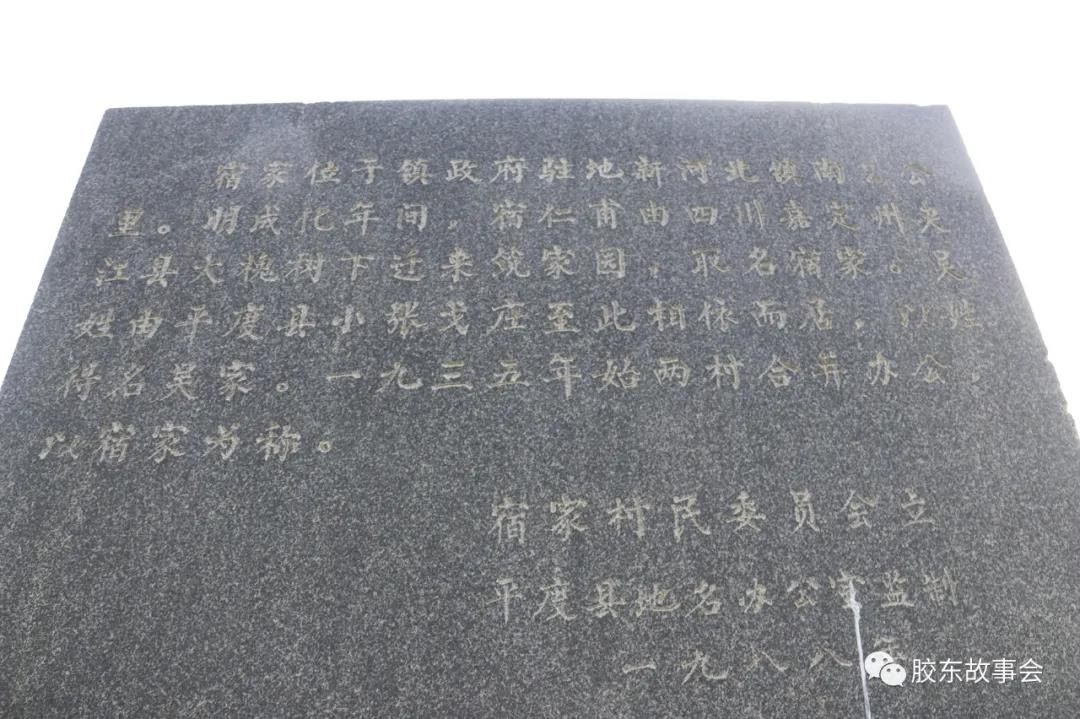 宿家位于镇政府驻地新河北镇南2公
里。明成化年间，宿仁甫由四川嘉定州夹
江县大槐树下迁来筑家园，取名宿家。吴
姓由平度县小张戈庄至此相依而居，以姓
得名吴家。一九三五年始两村合并办公，
以宿家为称。
宿家村民委员会立
平度县地名办公室监制
一九八八年
胶东故事会